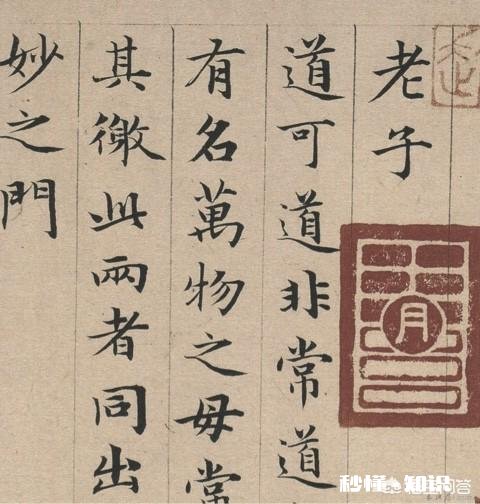 老子
道可道非常道
有名萬物之母常
其徼此兩者同出
妙之門
月
秒懂知识
问答